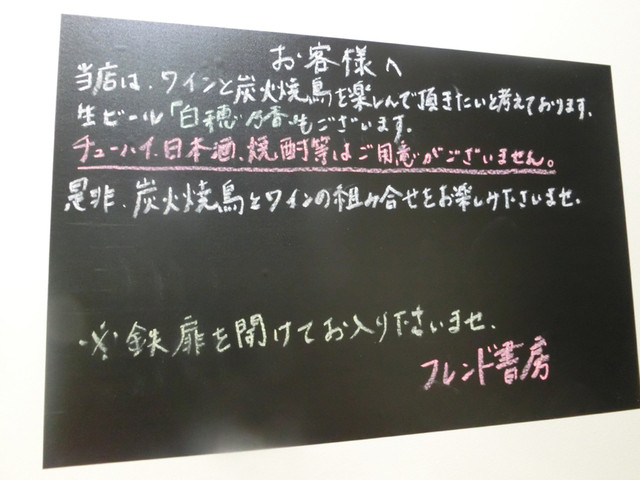 お客様へ
当店は、ワインと炭火焼鳥を楽しんで頂きたいと考えております。
生ビール「白穂乃香」もございます。
チューハイ、日本酒、焼酎等はご用意がございません。
是非、炭火焼鳥とワインの組み合せをお楽しみ下さいませ。
※鉄扉を開けてお入り下さいませ。
フレンド書房